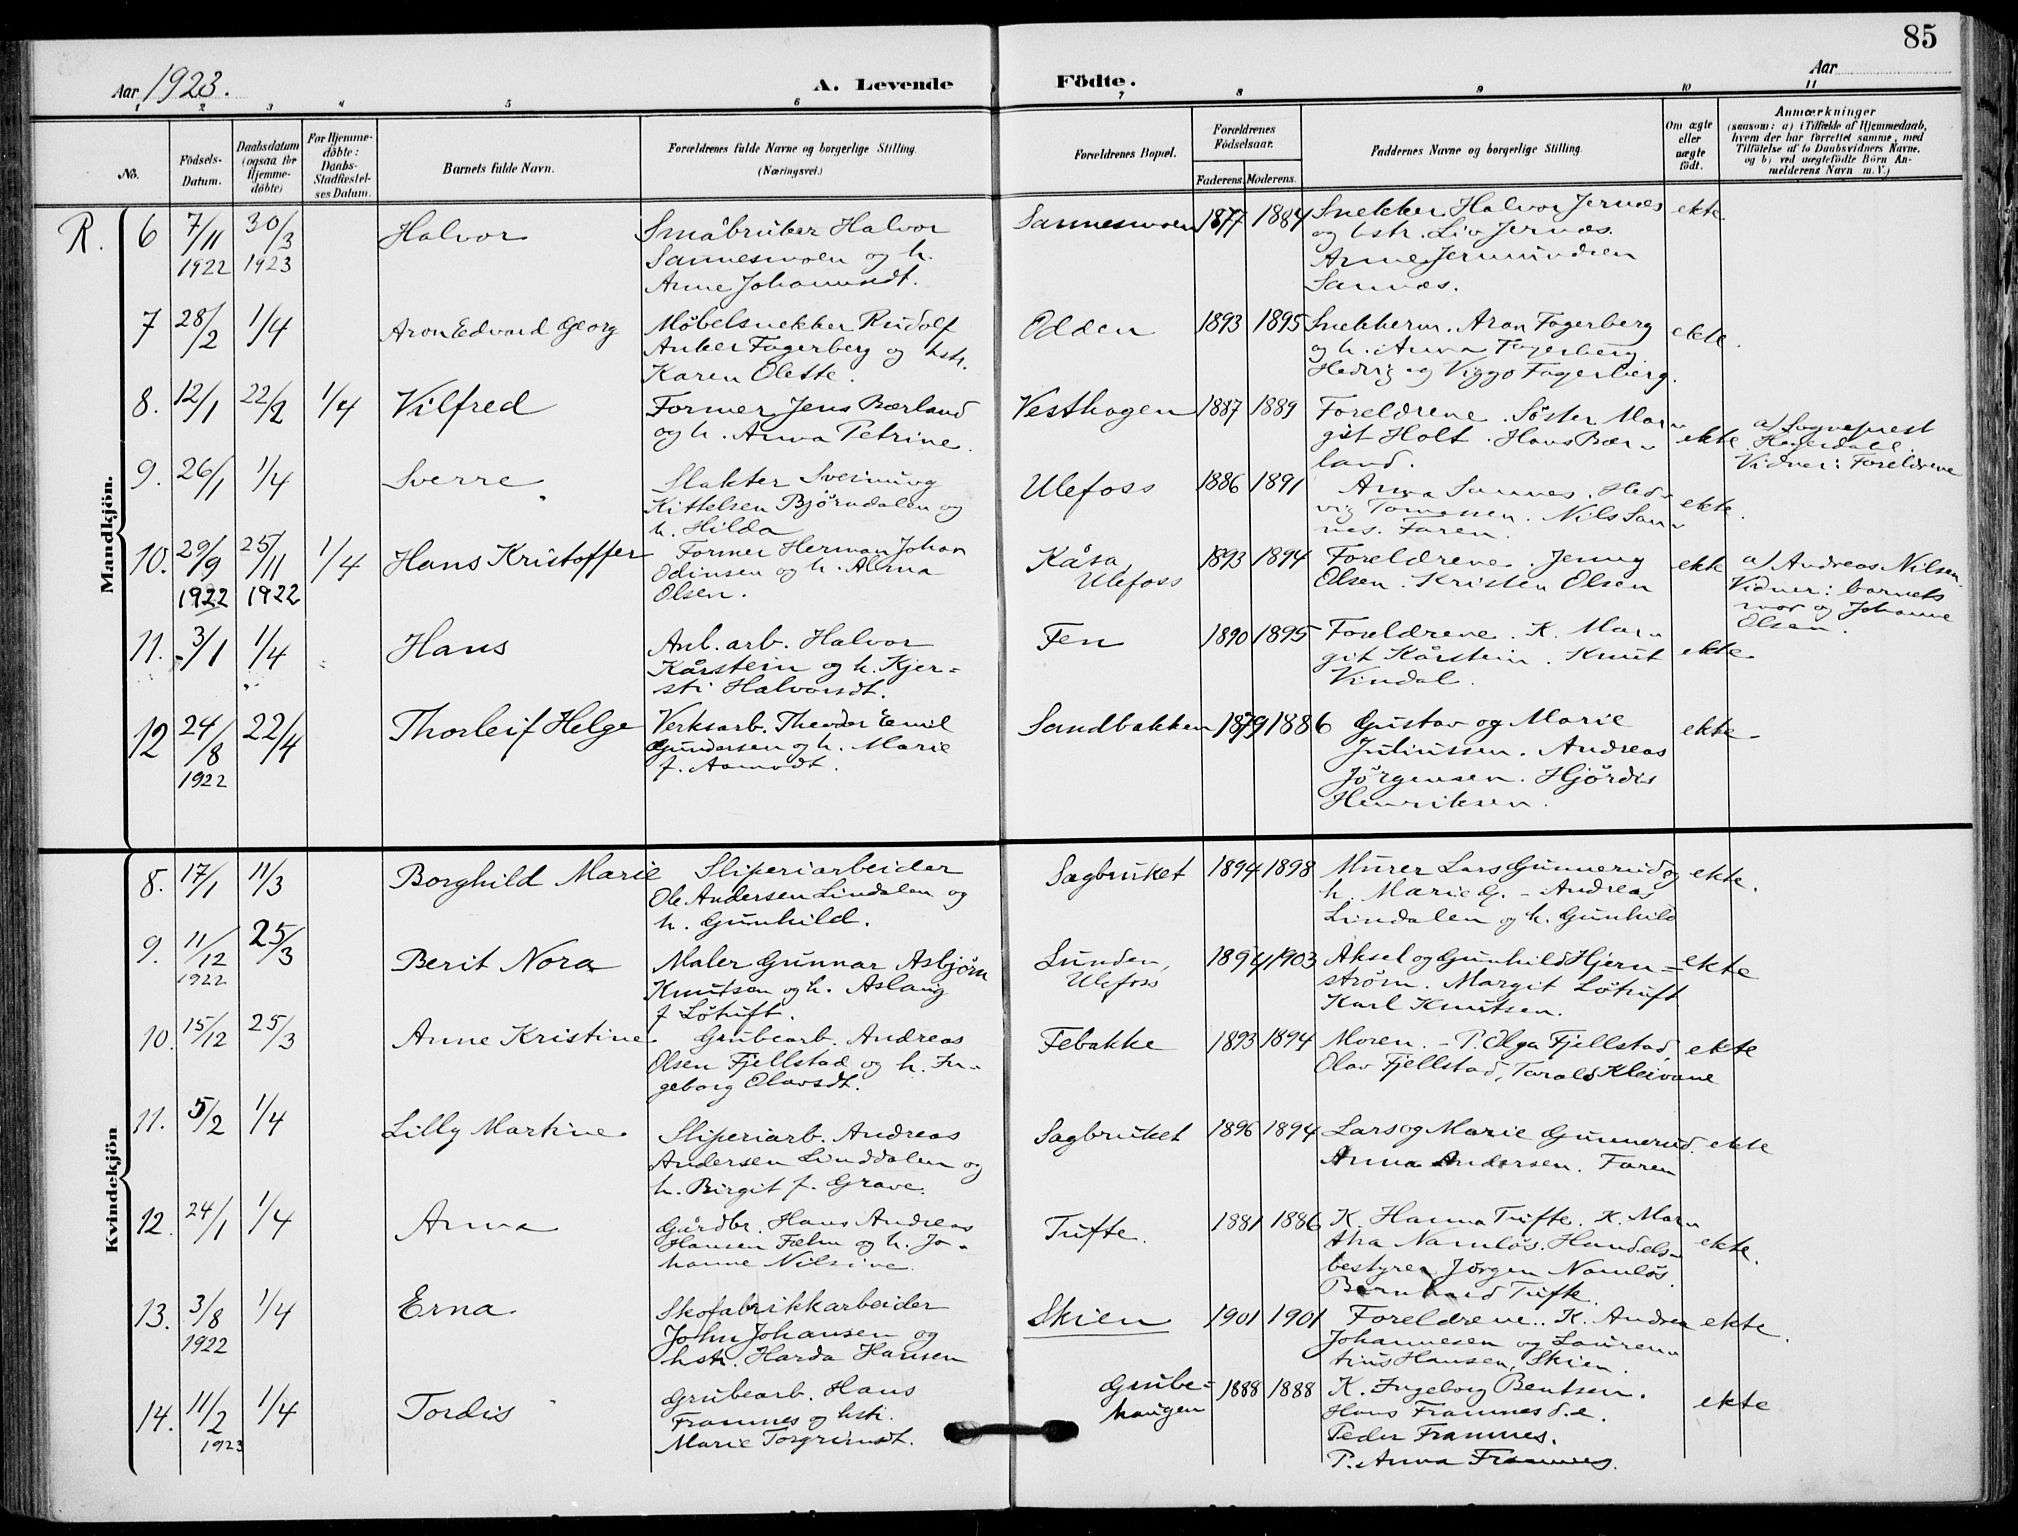 85
Aar 1923.
A. Levende Födte.
Aar
1 2 3 4 5 6 7 8 9 10 11
No.
Födsels-Datum.
Daabsdatum (ogsaa for Hjemme-döbte)
For Hjemme-döbte: Daabs-Stadfæstel-ses Datum.
Barnets fulde Navn.
Forældrenes fulde Navne og borgerlige Stilling. (Næringsvei.)
Forældrenes Bopæl.
Forældrenes Födselsaar.
Faderens. Moderens.
Faddernes Navne og borgerlige Stilling
Om ægte eller uægte födt.
Anmærkninger
(saasom: a) i Tilfælde af Hjemmedaab,
hvem der har forrettet samme, med
Tilföielse af to Daabsvidners Navne,
og b) ved uægtefödte Börn An-
melderens Navn m. V.)
Mandkjön.
R. 6 7/11 1922 30/3 1923 Halvor
Småbruker Halvor
Sannesmoen og h.
Anne Johannesdt.
Sannesmoen 1877 1884
Snekker Halvor Jernæs
og hstr. Liv Jernæs.
Arne Jermundsen
Sannæs.
ekte
7 28/2 1/4 Aron Edvard Georg
Møbelsnekker Rudolf
Anker Fagerberg og hstr.
Karen Olette.
Odden 1893 1895
Snekkerm. Aron Fagerberg
og h. Anna Fagerberg
Hedvig og Viggo Fagerberg.
ekte.
8. 12/1 22/2 1/4 Vilfred
Former Jens Bærland
og h. Anna Petrine.
Vesthagen 1887 1889
Foreldrene. Söster Mar-
git Holt. Hans Bær-
land.
ekte
a) Sogneprest
Vidner: Foreldrene
9. 26/1 1/4 Sverre
Slakter Sveinung
Kittelsen Björndalen og
h. Hilda
Ulefoss 1886 1891
Anna Sannes. Hed-
vig Tomessen. Nils San-
nes. Faren.
ekte.
10. 29/9 1922 25/11 1922 1/4 Hans Kristoffer
Former Herman Johan
Odinsen og h. Alma
Olsen.
Kåsa
Ulefoss 1893 1894
Foreldrene. Jenny
Olsen. Kristen Olsen
ekte
a) Andreas Nilsen.
Vidner: barnets
mor og Johanne
Olsen.
11. 3/1 1/4 Hans
Anl. arb. Halvor
Kårstein og h. Kjer-
sti Halvorsdt.
Fen 1890 1895
Foreldrene. K. Mar-
git Kårstein. Knut
Vindal.
ekte
12 24/8 1922 22/4 Thorleif Helge
Verksarb. Theodor Emil
Gundersen og h. Marie
f. Aamodt.
Sandbakken 1879 1886
Gustav og Marie
Juliussen. Andreas
Jörgensen. Hjördis
Henriksen.
ekte
Kvindekjön
8. 17/1 11/3 Borghild Marie
Sliperiarbeider
Ole Andersen Lindalen og
h. Gunhild.
Sagbruket 1894 1898
Murer Lars Gunnerud og
h. Marie G. - Andreas
Lindalen og h. Gunhild
ekte.
9. 11/12 1922 25/3 Berit Nora
Maler Gunnar Asbjørn
Knutsen og h. Aslaug
f Lötuft.
Lunden,
Ulefoss 1894 1903
Aksel og Gunhild Hjern=
strøm. Margit Lötuft
Karl Knutsen.
ekte
10. 15/12 25/3 Anne Kristine
Grubearb. Andreas
Olsen Fjellstad og h. In-
geborg Olavsdt.
Febakke 1893 1894
Moren. - P. Olga Fjellstad,
Olav Fjellstad, Tarald Kleivane
ekte
11. 5/2 1/4 Lilly Martine
Sliperiarb. Andreas
Andersen Linddalen og
h. Birgit f. Grave.
Sagbruket 1896 1894
Lars og Marie Gunnerud.
Anna Andersen. Faren
ekte
12. 24/1 1/4 Anna
Gårdbr. Hans Andreas
Hansen Fæhn og h. Jo-
hanne Nilsine.
Tufte. 1881 1886
K. Hanna Tufte. K. Mar-
tha Namløs. Handels-
bestyrer Jörgen Namløs.
Bernhard Tufte.
ekte.
13. 3/8 1922 1/4 Erna
Skofabrikkarbeider
John Johansen og
hstr. Harda Hansen
Skien 1901 1901
Foreldrene.. K. Andrea
Johannesen og Lauren-
tius Hansen, Skien.
ekte.
14. 11/2 1923 1/4 Tordis
Grubearb. Hans
Framnes og hstr.
Marie Torgrimsdt.
Grube=
haugen 1888 1888
K. Ingeborg Bentsen.
Hans Framnes d.e.
Peder Framnes.
P. Anna Framnes.
ekte